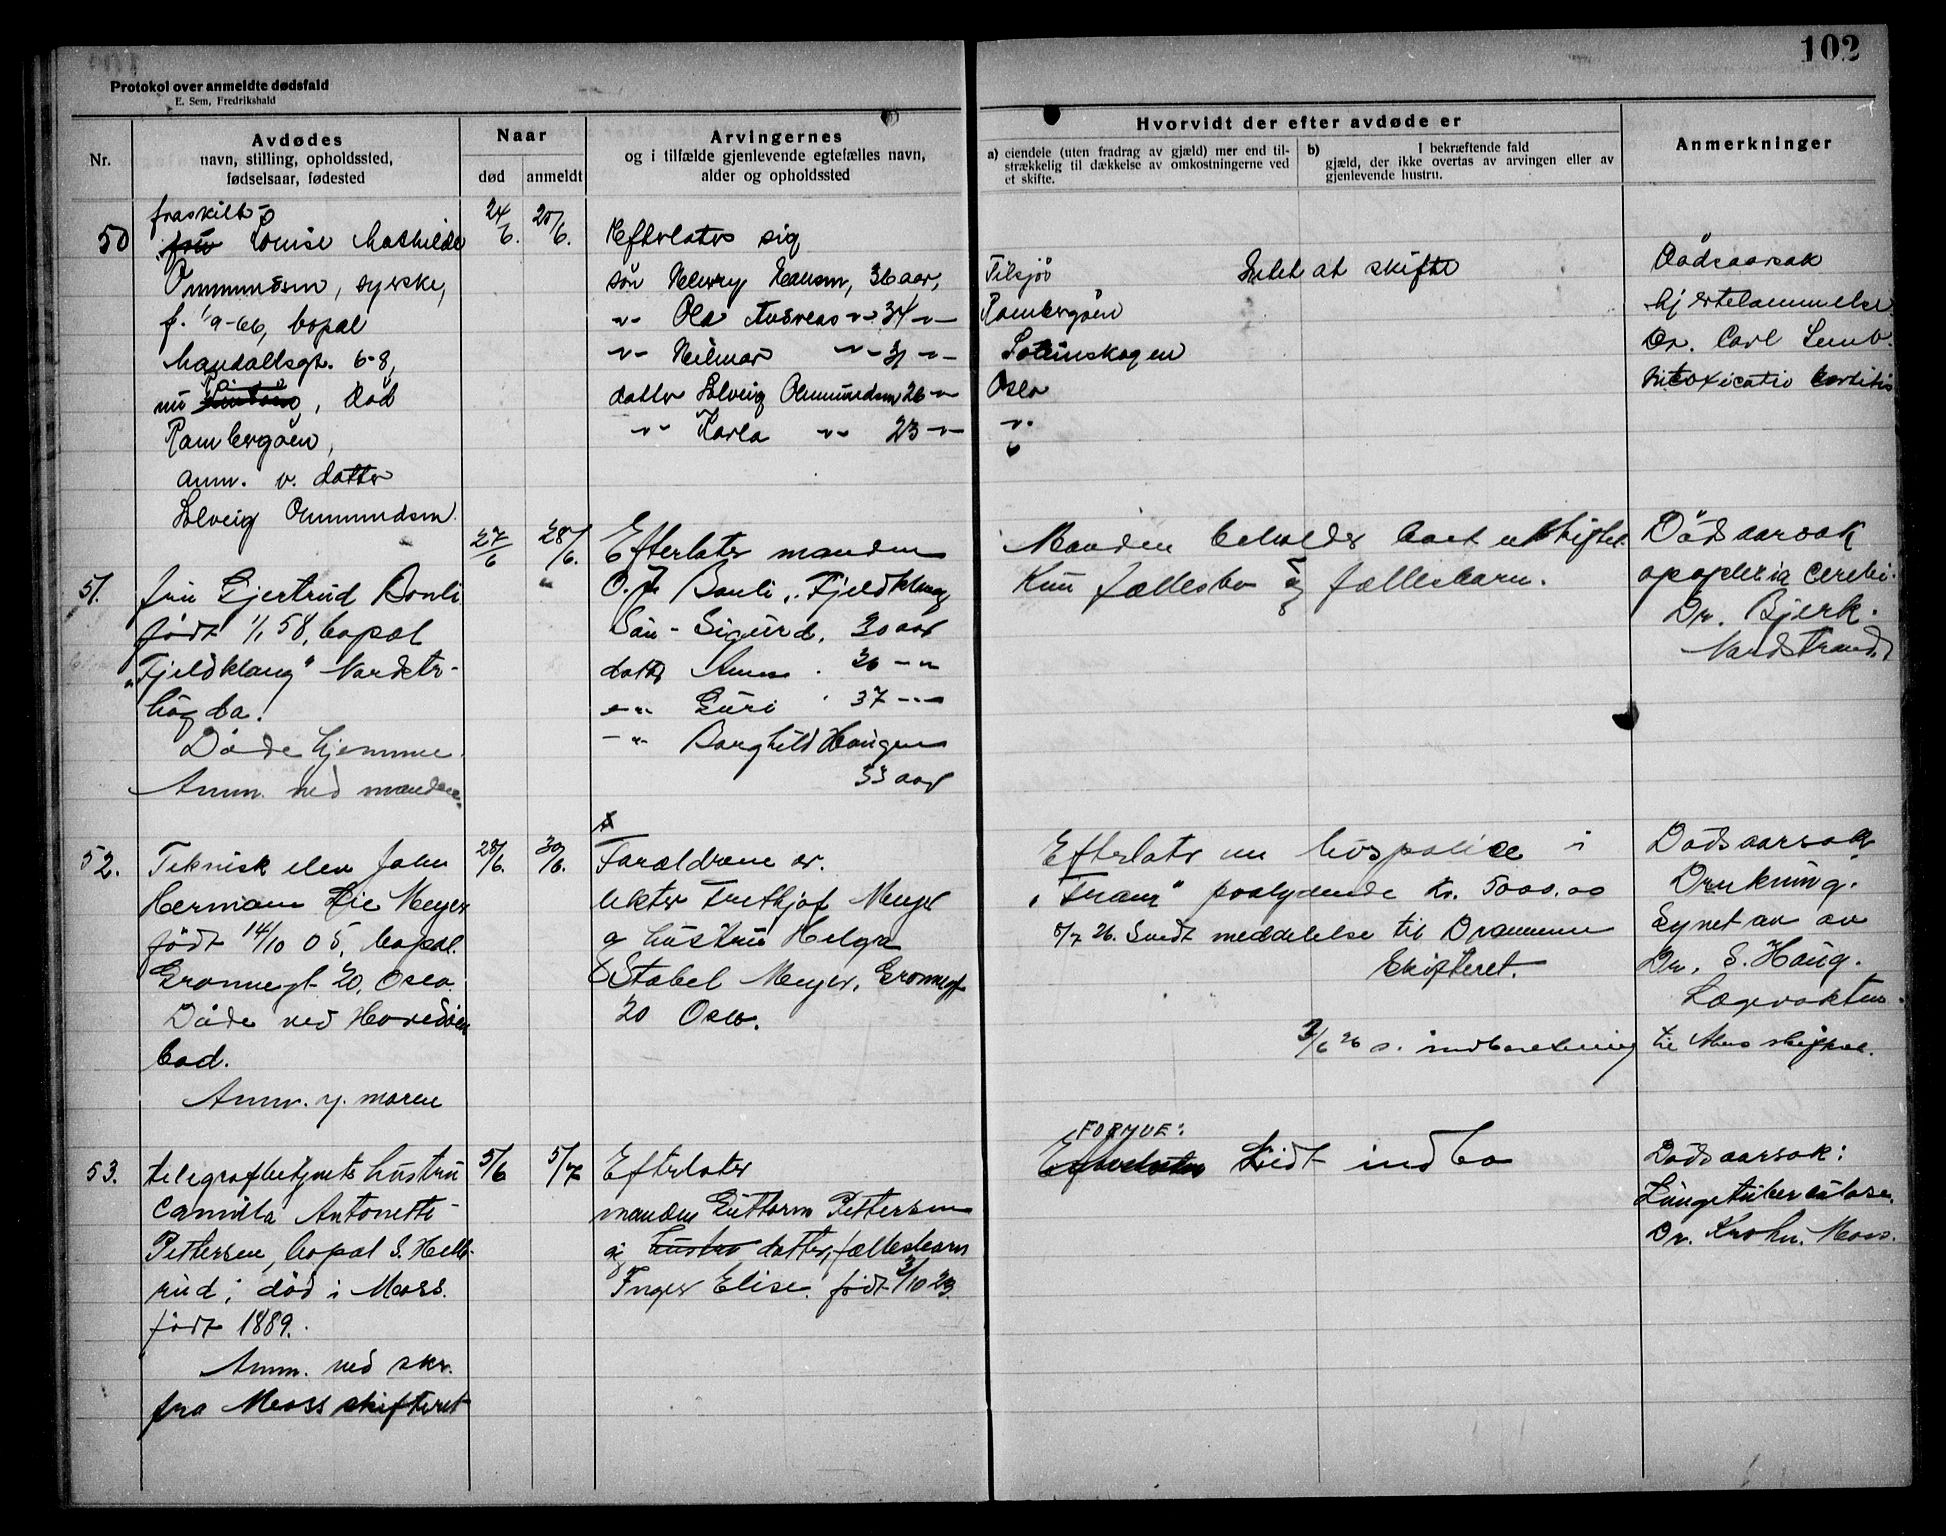 102
Protokol over anmeldte dødsfald
E. Sem, Fredrikshald
Nr.
Avdødes
navn, stilling, opholdssted,
fødselsaar, fødested
Naar
død
anmeldt
Arvingernes
og i tilfælde gjenlevende egtefælles navn,
alder og opholdssted
Hvorvidt der efter avdøde er
a) eiendele (uten fradrag av gjæld) mer end til-
strækkelig til dækkelse av omkostningerne ved
et skifte.
b) I bekræftende fald
gjæld, der ikke overtas av arvingen eller av
gjenlevende hustru.
Anmerkninger
50
fraskilt
fru Louise Mathilde
Ommundsen, syerske,
f. 1/9-66, bopæl
Mandallsgt. 6-8,
nu, død
Rambergøen,
anm. v. datter
Solveig Ommundsen.
24/6.
25/6.
Efterlater sig
søn Henry Hansen, 36 aar,
-"- Ola Andreas -"- 34 -"-
-"- Hilmar -"- 31 -"-
datter Solveig Ommundsen 26 -"-
-"- Karla -"- 23 -"-
Tilsjøs
Rambergøen
Oslo
-"-
Intet at skifte
Dødsaarsak
hjertelammelse
Dr. Carl Lund.
Intoxicatio
51.
fru Gjertrud Bonli
født 1/1 58, bopæl
"Fjeldklang" Nordstr-
høgda.
Døde hjemme.
Anm. ved manden.
27/6
28/6.
Efterlater manden
O. J. Bonli, Fjeldklang
Søn - Sigurd, 30 aar
datter Anna 36 -"-
-"- Guri 37 -"-
-"- Borghild Haugen
33 aar
Manden beholder boet uskiftet.
Kun fællesbo og fællesbarn.
Dødsaarsak
apoplexia cerebri.
Dr. Bjerk.
Nordstrand
52.
Teknisk elev John
Herman Lie Meyer
født 14/10 05, bopæl.
Grønnegt. 20, Oslo.
Døde ved Hovedøen
bad.
Anm. v. moren
28/6.
30/6.
x
Forældrene er.
lektor Fridthjof Meyer
og hustru Helga
x Stabel Meyer, Grønnegt
20 Oslo.
Efterlater en livspolice i
"Fram" paalydende Kr. 5000.00
5/7 26. Sendt meddelelse til Drammen
Skifteret.
26 s. indberetning til skifteret.
Dødsaarsak
Drukning.
Synet av av
Dr. S. Haug.
Lægevakten.
53.
telegrafbetjents hustru
Camilla Antonette
Pettersen, bopæl S. Helle-
rud; død i Moss.
født 1889.
Anm. ved skr.
fra Moss skifteret
5/6
5/7
Efterlater
manden Guttorm Pettersen
og hustru datter, fællesbarn
Inger Elise. født 3/10 23.
FORMUE:
Efterlater Lidt indbo
Dødsaarsak:
Lungetuberculose.
Dr. Krohn. Moss.